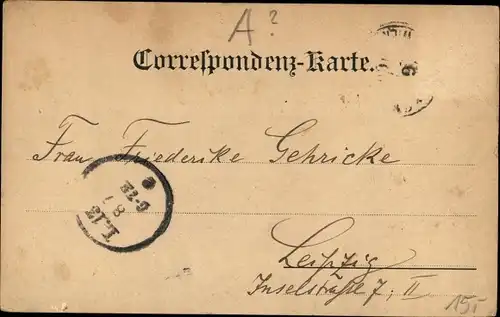 A?
Correspondenz-Karte.
Frau Friederike Gehricke
Leipzig
Inselstraße 7, II
15,-